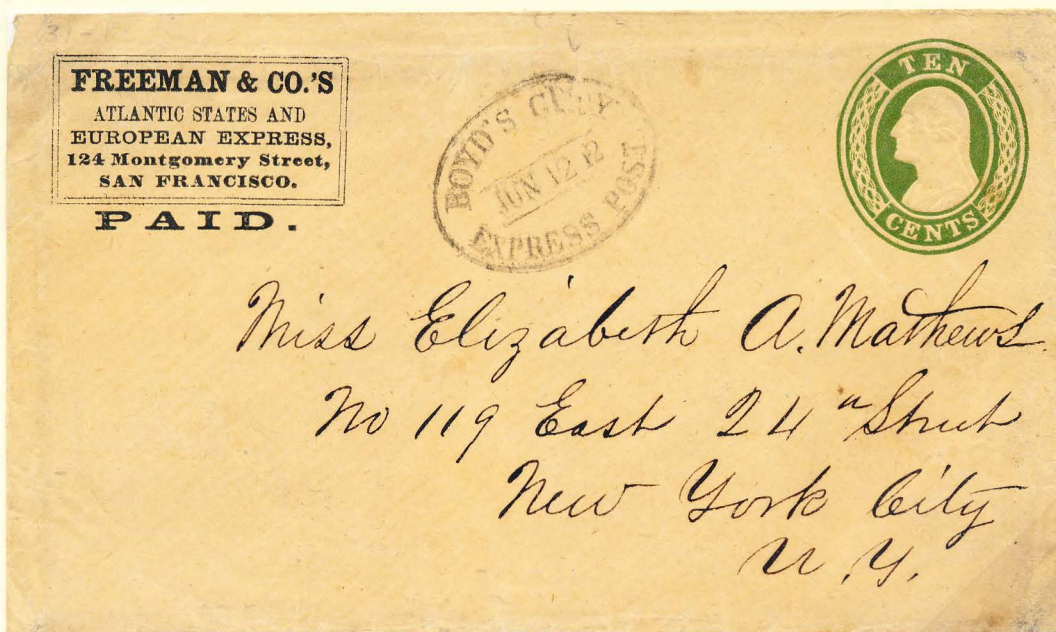 FREEMAN & CO.'S
ATLANTIC STATES AND
EUROPEAN EXPRESS,
124 Montgomery Street,
SAN FRANCISCO.
PAID.
BOYD'S CITY
JUN 12
EXPRESS POST
TEN
CENTS
Miss Elizabeth A. Mathews
No 119 East 24th Street
New York City
N.Y.